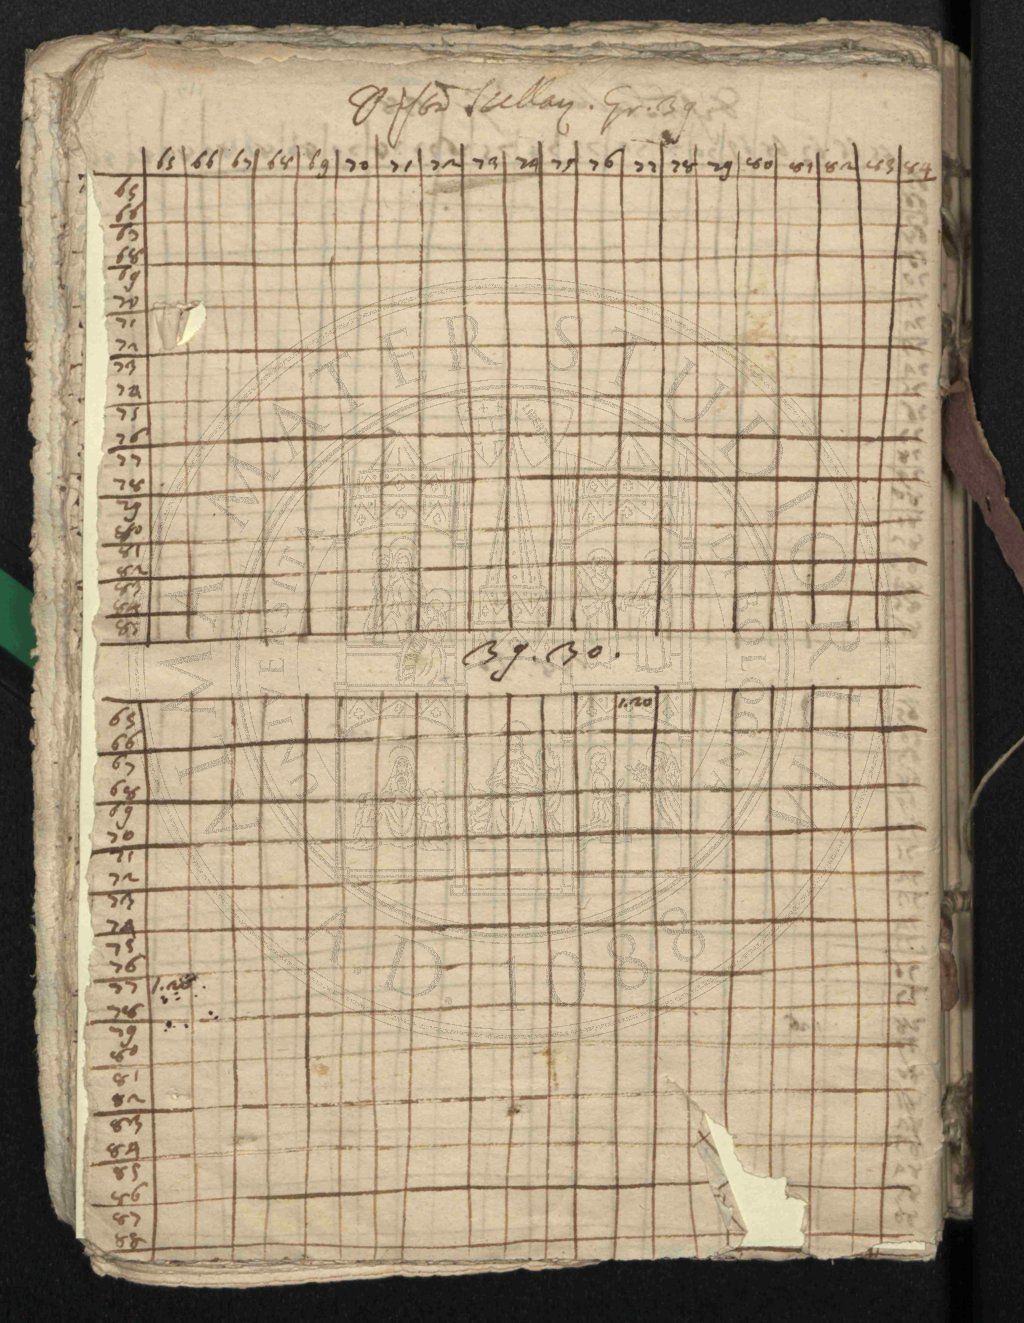 Gr. 39
65 66 67 68 69 70 71 72 73 74 75 76 77 78 79 80 81 82 83 84
65
66
67
68
69
70
71
72
73
74
75
76
77
78
79
80
81
82
83
84
85
39. 30.
1.20
65
66
67
68
69
70
71
72
73
74
75
76
77 1.20
78
79
80
81
82
83
84
85
86
87
88
ALMA MATER STUDIORUM
A.D. 1088